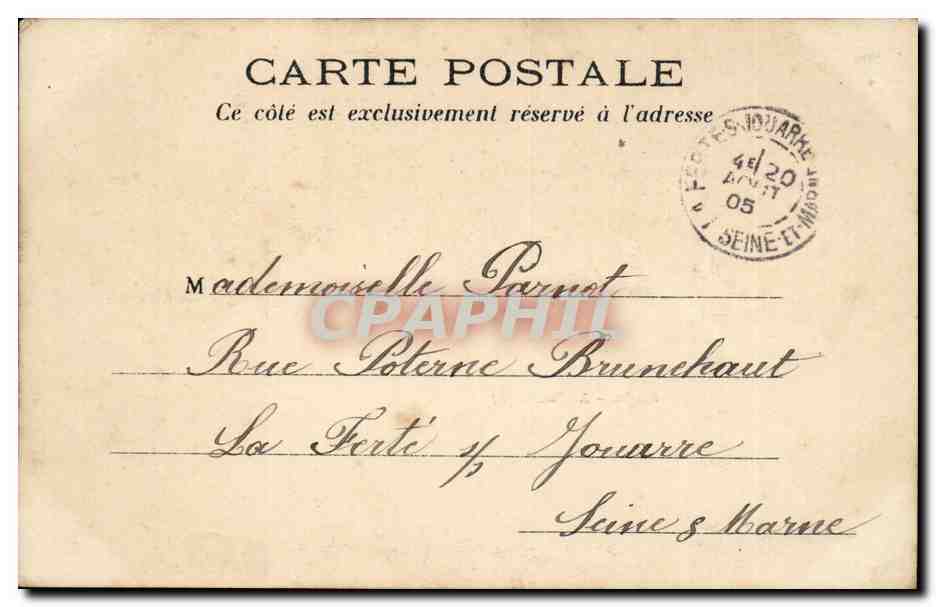 CARTE POSTALE
Ce côté est exclusivement réservé à l'adresse
FERTE-S-JOUARRE
4E/20
AOUT
05
SEINE-ET-MARNE
Mademoiselle Parnot
CPAPHIL
Rue Poterne Brunehaut
La Ferté s/ Jouarre
Seine & Marne